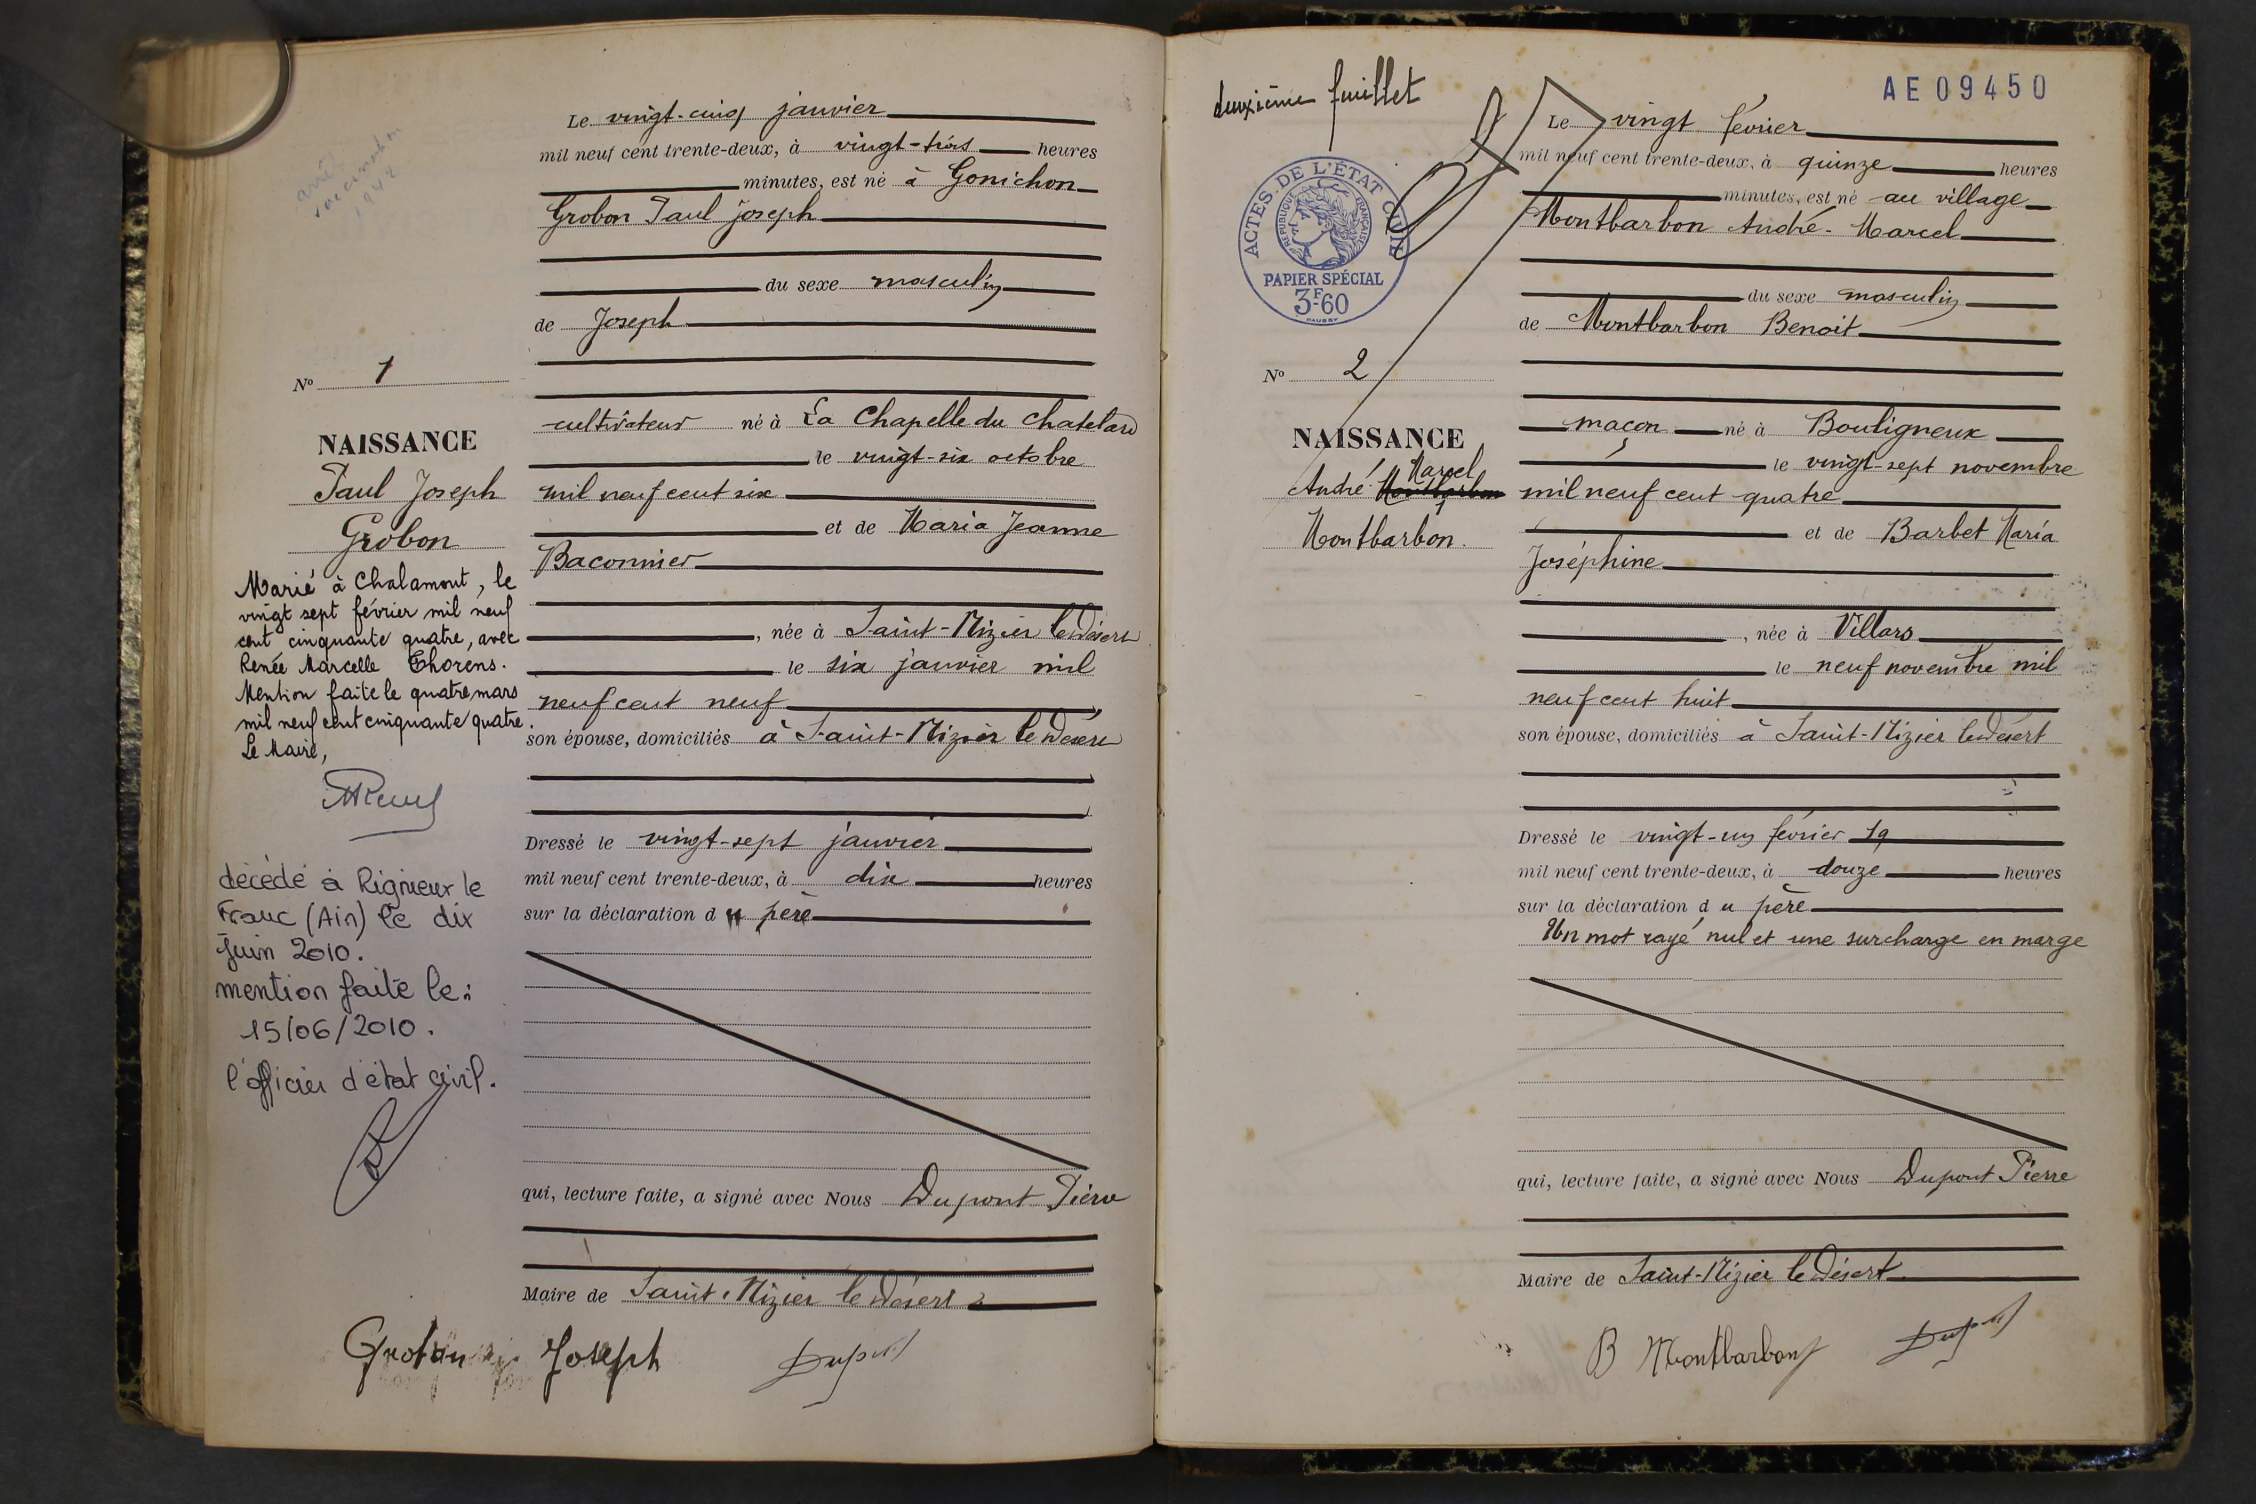 Le vingt-cinq janvier
mil neuf cent trente-deux, à vingt-trois heures
minutes, est né à Gonichon
Grobon Paul Joseph
du sexe masculin
de Joseph
cultivateur né à La Chapelle du Chatelard
le vingt-six octobre
mil neuf cent six
et de Maria Jeanne
Baconnier
, née à Saint-Nizier le Désert
le six janvier mil
neuf cent neuf
son épouse, domiciliés à Saint-Nizier le Désert
Dressé le vingt-sept janvier
mil neuf cent trente-deux, à dix heures
sur la déclaration du père
qui, lecture faite, a signé avec Nous Dupont Pierre
Maire de Saint-Nizier le Désert
Grobon Joseph
1942
No 1
NAISSANCE
Paul Joseph
Grobon
Marié à Chalamont, le
vingt sept février mil neuf
cent cinquante quatre, avec
Renée Marcelle Thorens.
Mention faite le quatre mars
mil neuf cent cinquante quatre.
Le Maire,
décédé à Rignieux le
Franc (Ain) le dix
juin 2010.
mention faite le:
15/06/2010.
l'officier d'état civil.
deuxième feuillet
AE09450
ACTES DE L'ÉTAT CIVIL
RÉPUBLIQUE FRANÇAISE
PAPIER SPÉCIAL
3F60
No 2
NAISSANCE
Marcel
André Montbarbon
Montbarbon.
Le vingt février
mil neuf cent trente-deux, à quinze heures
minutes, est né au village
Montbarbon André-Marcel
du sexe masculin
de Montbarbon Benoit
maçon né à Bouligneux
le vingt-sept novembre
mil neuf cent quatre
et de Barbet Maria
Joséphine
, née à Villars
le neuf novembre mil
neuf cent huit
son épouse, domiciliés à Saint-Nizier le Désert
Dressé le vingt-un février 19
mil neuf cent trente-deux, à douze heures
sur la déclaration du père
Un mot rayé nul et une surcharge en marge
qui, lecture faite, a signé avec Nous Dupont Pierre
Maire de Saint-Nizier le Désert
B Montbarbon